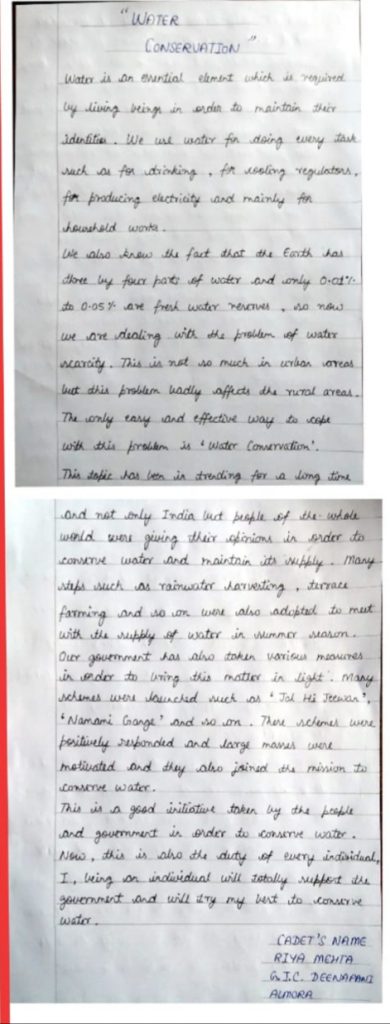 "WATER
CONSERVATION"
Water is an essential element which is required
by living beings in order to maintain their
identities. We use water for doing every task
such as for drinking, for cooling regulators,
for producing electricity and mainly for
household works.
We also know the fact that the Earth has
three by four parts of water and only 0.01%
to 0.05% are fresh water reserves, so now
we are dealing with the problem of water
scarcity. This is not so much in urban areas
but this problem badly affects the rural areas.
The only easy and effective way to cope
with this problem is 'Water Conservation'.
This topic has been in trending for a long time
and not only India but people of the whole
world were giving their opinions in order to
conserve water and maintain its supply. Many
steps such as rainwater harvesting, terrace
farming and so on were also adopted to meet
with the supply of water in summer season.
Our government has also taken various measures
in order to bring this matter in light. Many
schemes were launched such as 'Jal Hi Jeevan',
'Namami Gange' and so on. These schemes were
positively responded and large masses were
motivated and they also joined the mission to
conserve water.
This is a good initiative taken by the people
and government in order to conserve water.
Now, this is also the duty of every individual,
I, being an individual will totally support the
government and will try my best to conserve
water.
CADET'S NAME
RIYA MEHTA
G.I.C. DEENAPANI
ALMORA